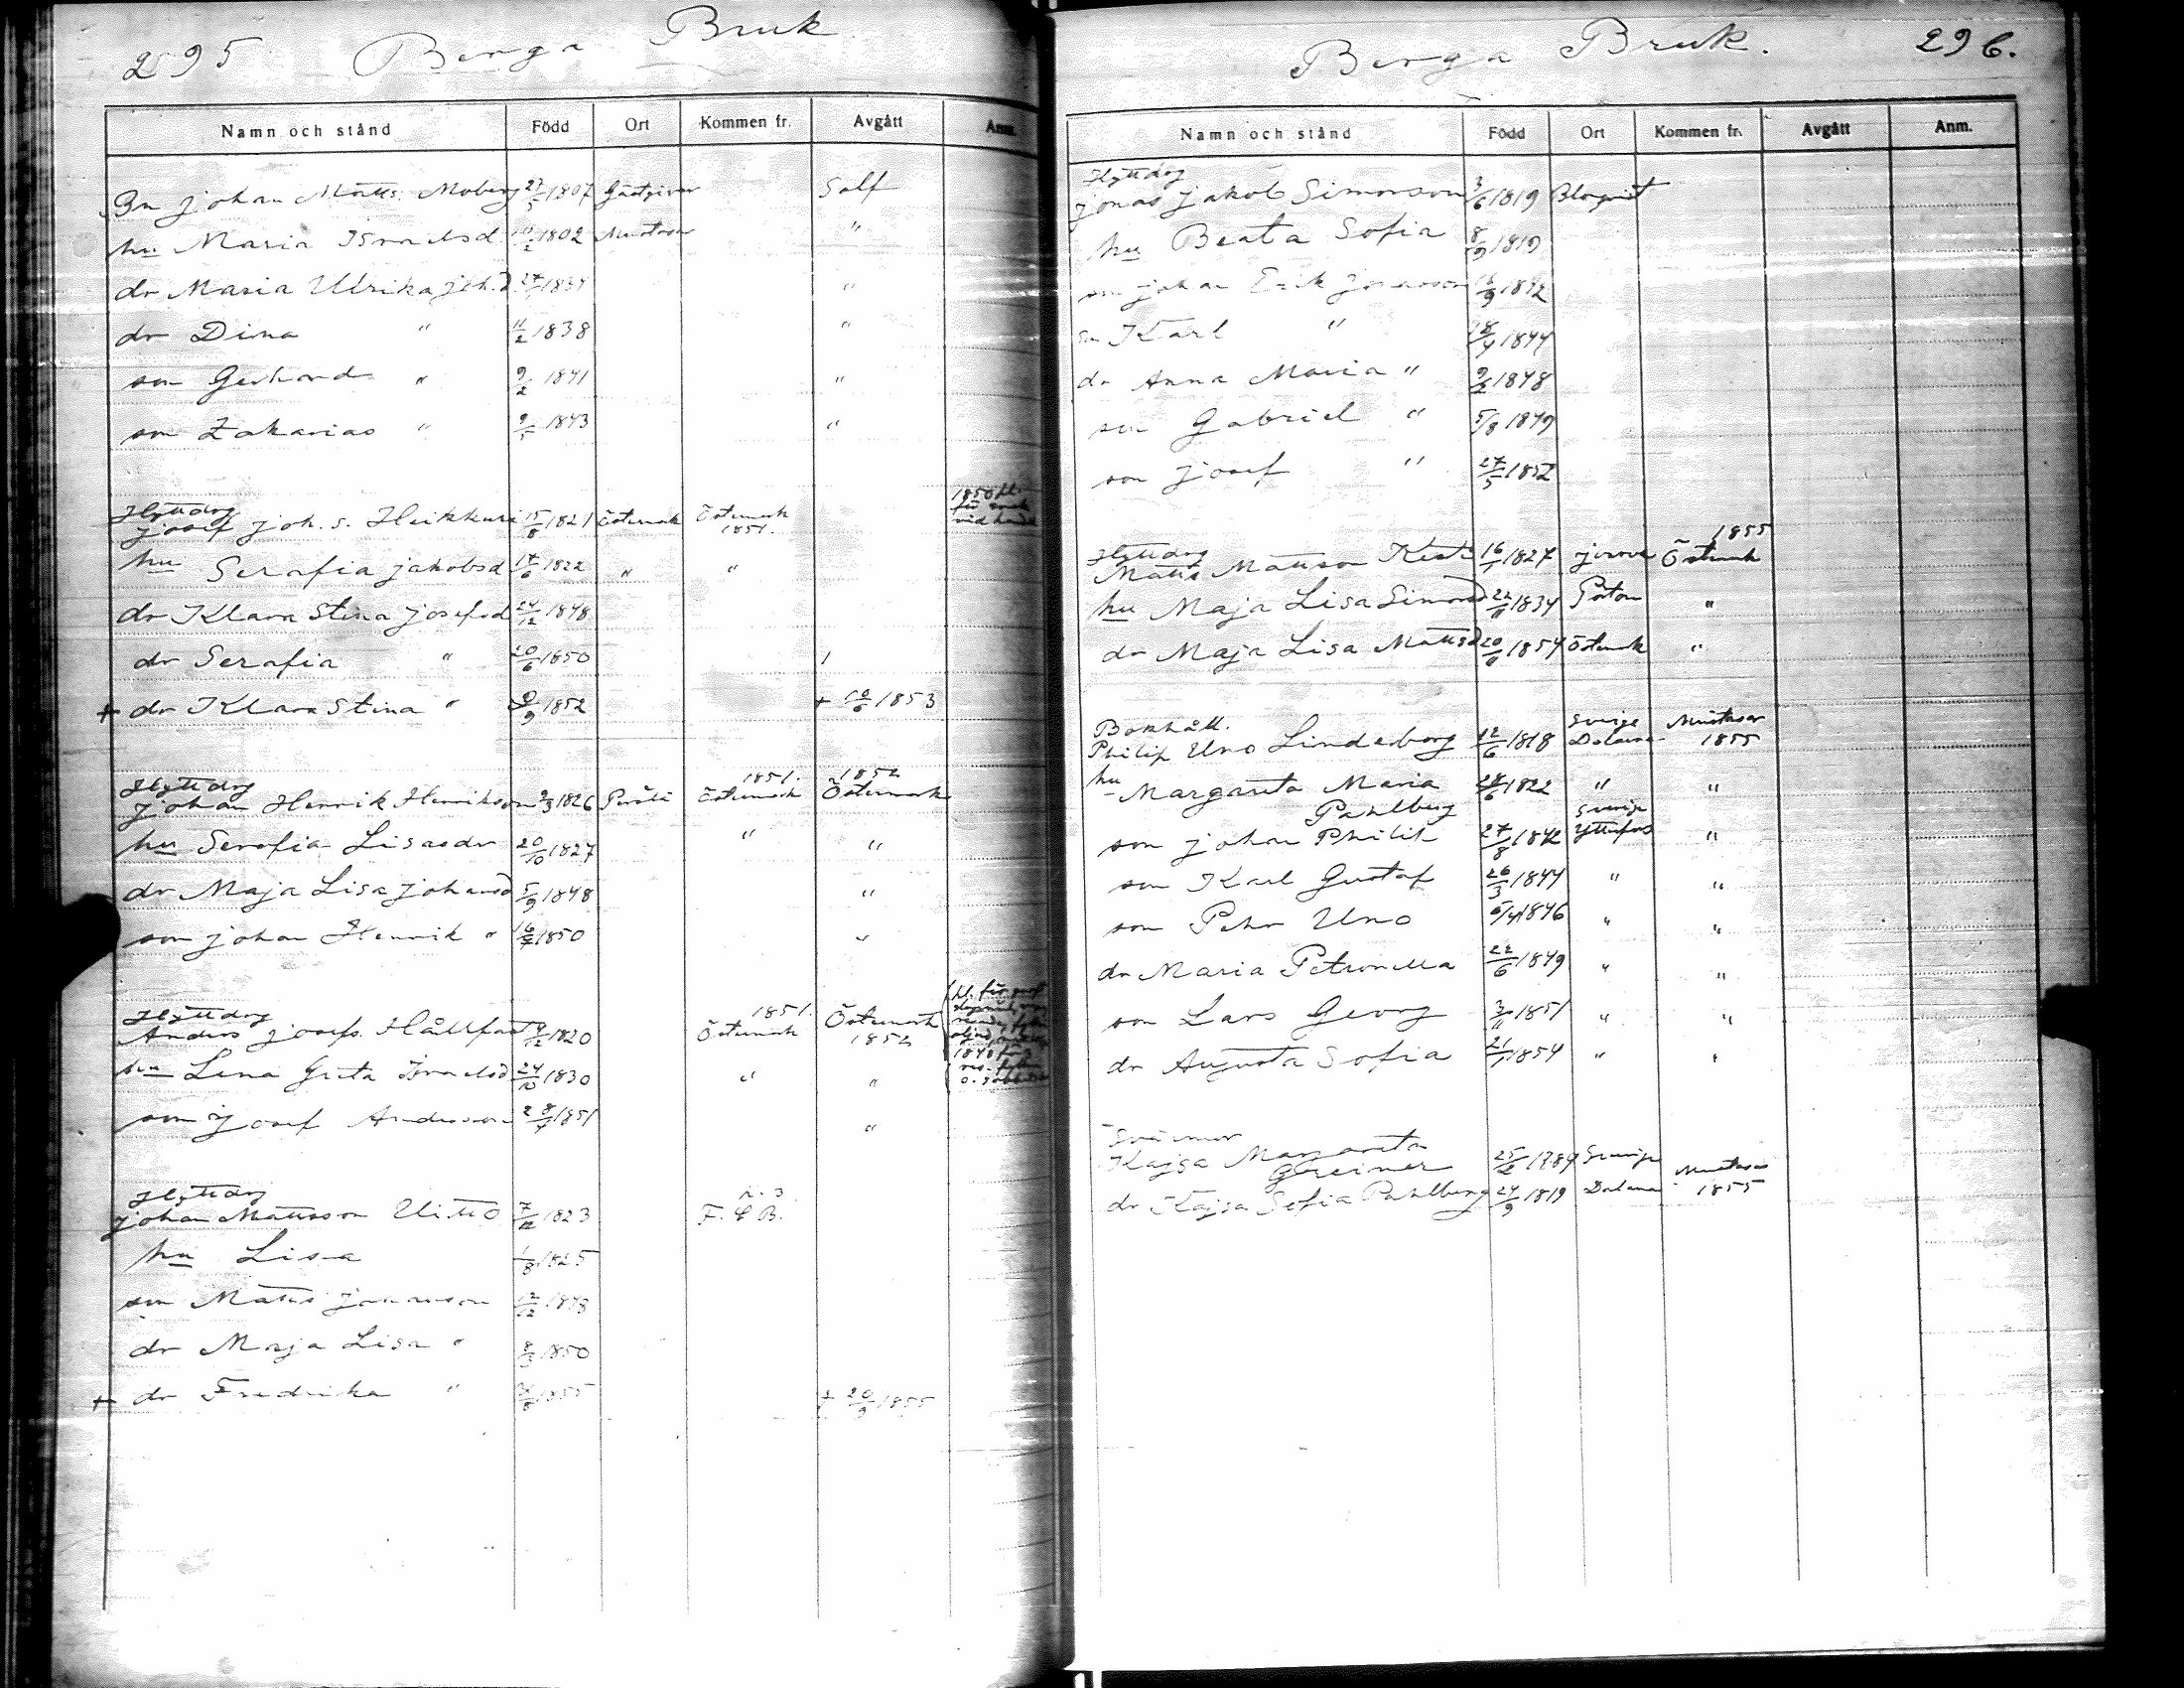 295 Berga Bruk
Namn och stånd Född Ort Kommen fr. Avgått Anm.
Bn Johan Matts. Moberg 27/5 1807 Gästgivar Solf
hu Maria Israelsd. 10/2 1802 Mustasar "
dr Maria Ulrika Joh.d. "
dr Dina " 11/2 1838 "
son Gerhard " 9/2 1841 "
son Zakarias " 9/5 1843 "
Hyttdrg
Josef Joh. s. Heikkuri 15/8 1821 Östermark Östermark 1851.
hu Serafia Jakobsd 17/6 1822 " "
dr Klara Stina Josefsd 24/12 1848
dr Serafia " 20/6 1850
+ dr Klara Stina " 1852 + 10/6 1853
Hyttdrg 1851. 1852
Johan Henrik Henrikson 9/3 1826 Östermark Östermark
hu Serafia Lisasdr 20/10 1827 " "
dr Maja Lisa Johansd 5/9 1848 "
son Johan Henrik " 1850 "
Hyttdrg 1851.
Anders Josefs. Hällfast 1820 Östermark Östermark 1852
hu Lena Greta Israelsd 24/10 1830 " "
son Josef Andersson 1851 "
Hyttdrg n. 3
Johan Mattsson Uitto 7/12 1823 F. & B.
hu Lisa 1/8 1825
son Matts Johansson 12/12 1848
dr Maja Lisa " 8/3 1850
+ dr Fredrika " 1855 + 20/9 1855
Berga Bruk. 296.
Namn och stånd Född Ort Kommen fr. Avgått Anm.
Hyttdrg
Jonas Jakob Simonson 3/6 1819 Blogvist
hu Beata Sofia 8/9 1819
son Johan Erik Jonasson 1842
sn Karl " 18/4 1844
dr Anna Maria " 1848
son Gabriel " 5/8 1849
son Josef " 27/5 1852
Hyttdrg 1855
Matts Mattson 16/1 1827 Östermark
hu Maja Lisa Simonsd 22/11 1834 Pörtom "
dr Maja Lisa Mattsd 20/11 1854 Östermark "
Bokhåll. Sverige Mustasar
Philip Uno Linderborg 12/6 1818 Dalarna 1855
hu Margareta Maria 1822 " "
Pahlberg Sverige
son Johan Philip 27/8 1842 Yttrefors "
son Karl Gustaf 26/3 1844 " "
son Pehr Uno 5/4 1846 " "
dr Maria Petronella 22/6 1849 " "
son Lars Georg 3/11 1851 " "
dr Augusta Sofia 21/1 1854 " "
Svärmor
Kajsa Margareta
Greiner 25/2 1789 Sverige Mustasar
dr Kajsa Sofia Pahlberg 24/9 1819 Dalarna 1855